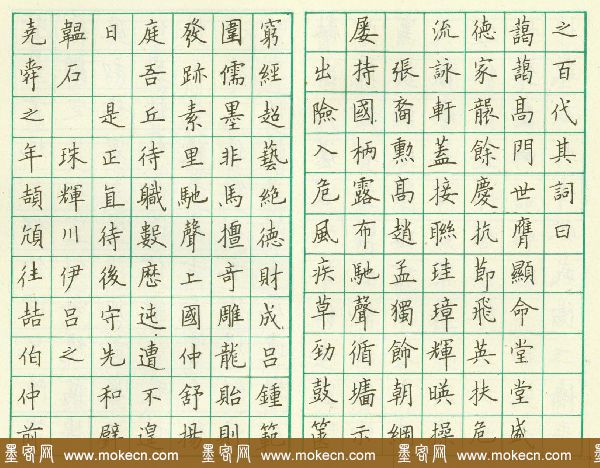 之百代其詞曰
藹藹高門世膺顯命堂堂盛
德家襲餘慶抗節飛英扶危
流詠軒蓋接聯珪璋輝暎操
張裔勳高趙孟獨飾朝綱
屡持國柄露布馳聲循墻示
出險入危風疾草勁鼓篋
窮經超藝絶德財成呂鍾範
圍儒墨非馬擅奇雕龍貽則
發跡素里馳聲上國仲舒
庭吾丘待職數歷迍遭不遑
日是正直待後守先和璧
韞石珠輝川伊呂之
堯舜之年頡頏往喆伯仲前
墨客网 www.mokecn.com 墨客网 www.mokecn.com 墨客网 www.mokecn.com